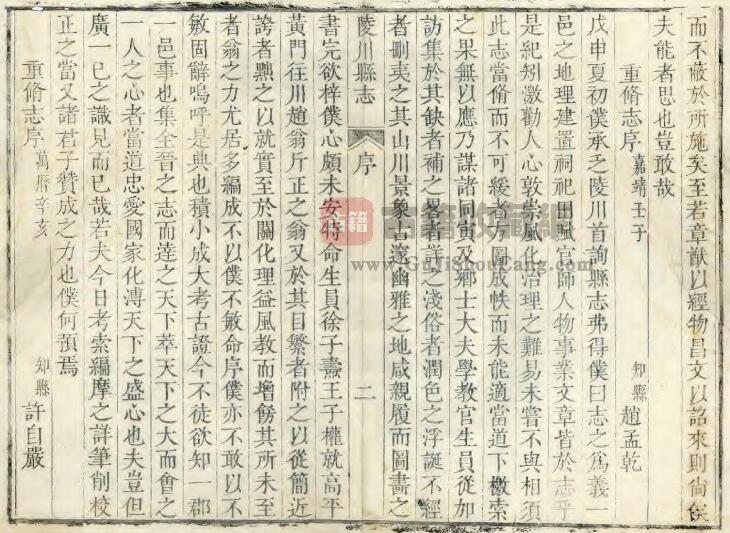 而不蔽於所施矣至若章猷以經物昌文以詔來則尙俟
夫能者思也豈敢哉
重脩志序 嘉靖壬子 知縣 趙孟乾
戊申夏初僕承乏陵川首詢縣志弗得僕曰志之爲義一
邑之地理建置祠祀田賦官師人物事業文章皆於志乎
是紀矧激勸人心敦崇風化治理之難易未嘗不與相須
此志當脩而不可緩者方圖成帙而未能適當道下檄索
之果無以應乃謀諸同寅及鄉士大夫學教官生員從加
訪集於其缺者補之畧者詳之淺俗者潤色之浮誕不經
者刪夷之其山川景象古邃幽雅之地咸親履而圖畵之
陵川縣志 序 二
書完欲梓僕心頗未安特命生員徐子壽王子權就高平
黃門往川趙翁斤正之翁又於其目繁者附之以從簡近
誇者㸃之以就實至於關化理益風教而增餙其所未至
者翁之力尤居多編成不以僕不敏命序僕亦不敢以不
敏固辭嗚呼是典也積小成大考古證今不徒欲知一郡
一邑事也集全晉之志而達之天下萃天下之大而會之
一人之心者當道忠愛國家化溥天下之盛心也夫豈但
廣一已之識見而已哉若夫今日考索編摩之詳筆削校
正之當又諸君子贊成之力也僕何預焉
重脩志序 萬曆辛亥 知縣 許自嚴
古籍收藏網
www.GuJiShouCang.com